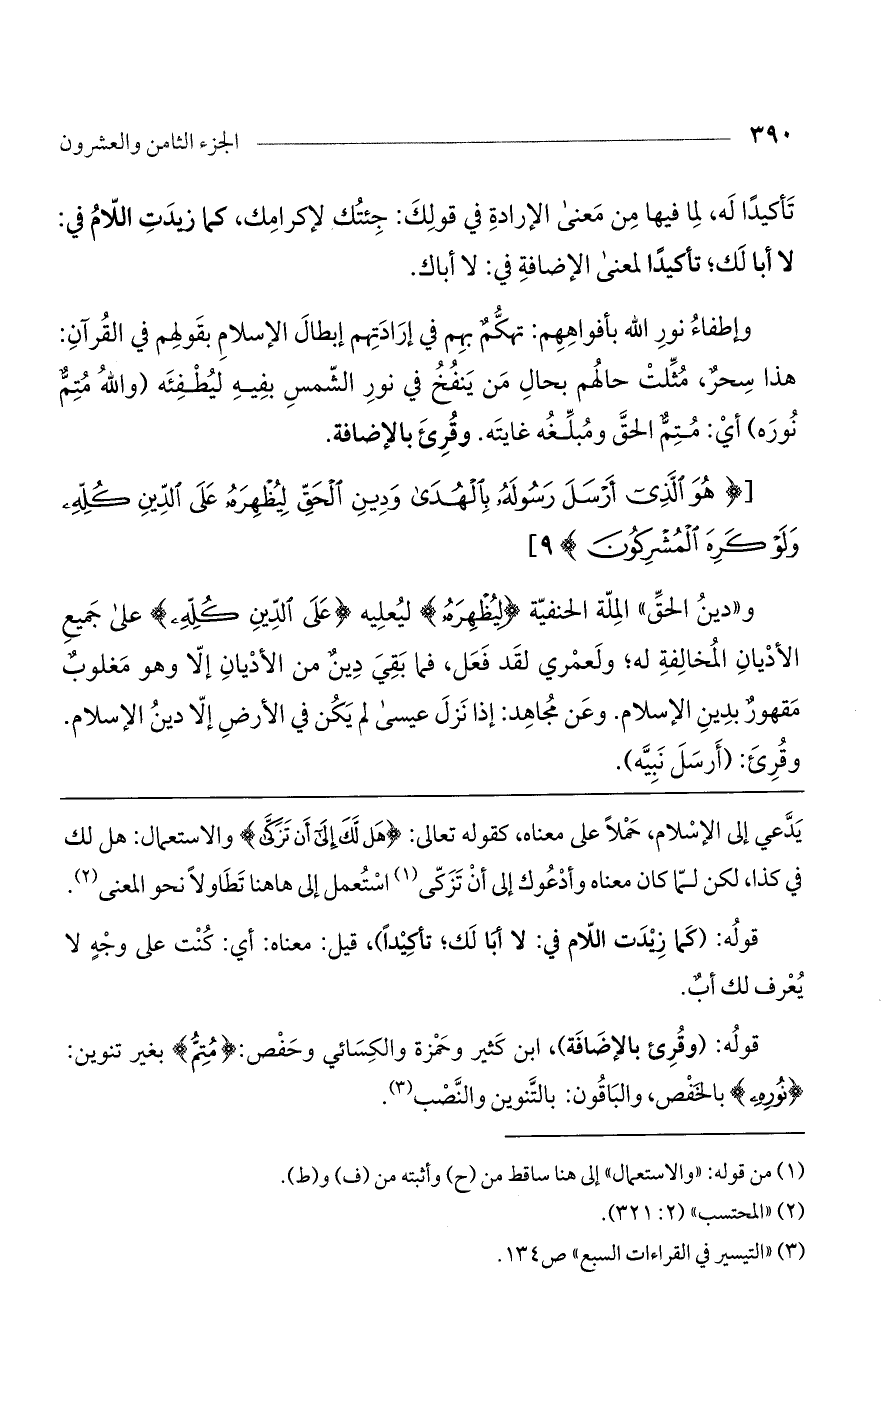 ٣٩٠ ــــــــــ الجزء الثامن والعشرون
تَأكيدًا لَه، لِما فيها مِن مَعنىٰ الإرادةِ في قولِكَ: جِئتُك لإكرامِك، كما زيدَتِ اللّامُ في:
لا أبا لَك؛ تأكيدًا لمعنىٰ الإضافةِ في: لا أباك.
وإطفاءُ نورِ الله بأفواهِهِم: تهكُّمٌ بهِم في إرَادَتِهم إبطالَ الإسلامِ بقَولِهم في القُرآنِ:
هذا سِحرٌ، مُثِّلتْ حالُهم بحالِ مَن يَنفُخُ في نورِ الشّمسِ بفِيهِ ليُطْفِئَه (واللهُ مُتِمٌّ
نُورَه) أيْ: مُتِمٌّ الحقَّ ومُبلِّغُه غايتَه. وقُرِئَ بالإضافة.
[﴿ هُوَ ٱلَّذِىٓ أَرْسَلَ رَسُولَهُۥ بِٱلْهُدَىٰ وَدِينِ ٱلْحَقِّ لِيُظْهِرَهُۥ عَلَى ٱلدِّينِ كُلِّهِۦ
وَلَوْ كَرِهَ ٱلْمُشْرِكُونَ ﴾ ٩]
و«دينُ الحقِّ» المِلّة الحنفيّة ﴿لِيُظْهِرَهُۥ﴾ ليُعلِيه ﴿عَلَى ٱلدِّينِ كُلِّهِۦ﴾ علىٰ جَميعِ
الأدْيانِ المُخالِفةِ له؛ ولَعمْري لقَد فَعَل، فما بَقِيَ دِينٌ من الأدْيانِ إلّا وهو مَغلوبٌ
مَقهورٌ بدِينِ الإسلام. وعَن مُجاهِد: إذا نَزلَ عيسىٰ لم يَكُن في الأرضِ إلّا دينُ الإسلام.
وقُرِئَ: (أَرسَلَ نَبِيَّه).
يَدَّعي إلى الإسْلام، حَمْلاً على معناه، كقوله تعالى: ﴿هَل لَّكَ إِلَىٰٓ أَن تَزَكَّىٰ﴾ والاستعمال: هل لك
في كذا، لكن لـمّا كان معناه وأدْعُوك إلى أنْ تَزَكّى(١) اسْتُعمل إلى هاهنا تَطَاولاً نحو المعنى(٢).
قولُه: (كَما زِيْدَت اللّام في: لا أبَا لَك؛ تأكِيْداً)، قيل: معناه: أي: كُنْت على وجْهٍ لا
يُعْرف لك أبٌ.
قولُه: (وقُرِئ بالإضَافَة)، ابن كَثير وحَمْزة والكِسَائي وحَفْص: ﴿مُتِمُّ﴾ بغير تنوين:
﴿نُورِهِۦ﴾ بالخَفْص، والبَاقُون: بالتَّنوين والنَّصْب(٣).
(١) من قوله: «والاستعمال» إلى هنا ساقط من (ح) وأثبته من (ف) و(ط).
(٢) «المحتسب» (٢: ٣٢١).
(٣) «التيسير في القراءات السبع» ص١٣٤.